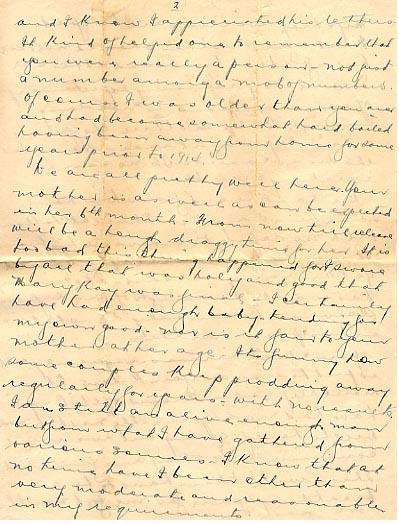 2
and I know I appreciated his letters.
It kind of helped one to remember that
you were really a person - not just
a number among a mob of numbers.
Of course I was older than you are
and had become somewhat hard boiled
having been away from home for some
years prior to 1914.
We are all pretty well here. Your
mother is as well as can be expected
in her 6th month - From now till release
will be a tough draggy thing for her. It is
too bad this thing happened for I swore
by all that was holy and good that
Mary Kay was final - I certainly
have had enough baby-tending for
my own good - nor is it fair to your
mother at her age. Its funny how
some couples keep prodding away
regularly for years - with no results
I am still an alive enough man
but from what I have gathered from
various sources. I know that at
no time have I been other than
very moderate and reasonable
in my requirements.